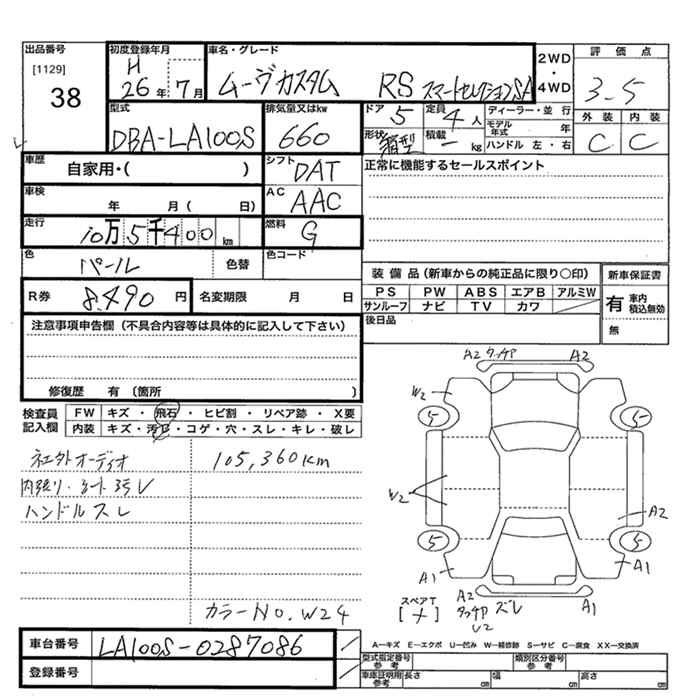 出品番号
[1129]
38
初度登録年月
H
26年7月
車名・グレード
ムーヴカスタム RS スマートセレクションSA
2WD
・
4WD
評価点
3.5
型式
DBA-LA100S
排気量又はkw
660
ドア
5
定員
4人
ディーラー・並行
モデル年式 年
ハンドル 左・右
形状
箱型
積載
ー kg
外装 内装
C C
車歴
自家用・( )
シフト
DAT
正常に機能するセールスポイント
車検
年 月( 日)
AC
AAC
走行
10万5千400km
燃料
G
色
パール
色替
色コード
装備品(新車からの純正品に限り○印)
PS PW ABS エアB アルミW
サンルーフ ナビ TV カワ
新車保証書
有 車内積込無効
無
R券
8.490円
名変期限 月 日
後日品
注意事項申告欄(不具合内容等は具体的に記入して下さい)
修復歴 有(箇所 )
検査員記入欄
FW キズ・飛石・ヒビ割・リペア跡・X要
内装 キズ・汚レ・コゲ・穴・スレ・キレ・破レ
社外オーディオ
105,360km
内張り・シート汚レ
ハンドルスレ
カラーNO.W24
A2 タッチP A2
W2
5 5
W2
A2
5 5
A1 A1
スペアT
[メ ]
A2 タッチP ズレ A1
U2
車台番号
LA100S-0287086
登録番号
A―キズ E―エクボ U―凹み W―補修跡 S―サビ C―腐食 XX―交換済
型式指定番号 参考
類別区分番号 参考
車庫証明用 参考
長さ cm 幅 cm 高さ cm